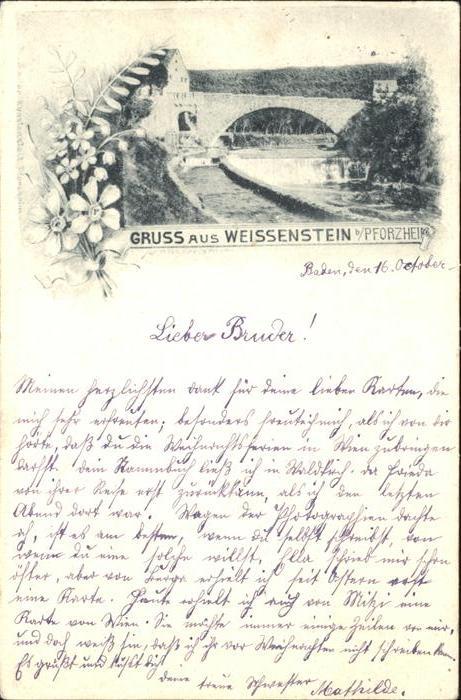 GRUSS AUS WEISSENSTEIN b/PFORZHEIM
Baden, den 16. October
Lieber Bruder!
Meinen herzlichsten Dank für deine lieben Karten, die
mich sehr erfreuten; besonders freute mich, als ich von dir
hörte, daß du die Weihnachtsferien in Wien zubringen
darfst. Dem Stammbuch ließ ich in Waldkirch. da Frieda
von ihrer Reise erst zurückkam, als ich den letzten
Abend dort war. Wegen der Photographien dachte
ich, ist es am besten, wenn du selbst schreibst, von
wem du eine solche willst. Ella schrieb mir schon
öfter, aber von erhielt ich seit Ostern erst
eine Karte. Heute erhielt ich auch von Mitzi eine
Karte von Wien. Sie möchte immer einige Zeilen von mir,
und doch weiß sie, daß ich ihr vor Weihnachten nicht schreiben kann.
Es grüßt und küßt dich
deine treue Schwester Mathilde.